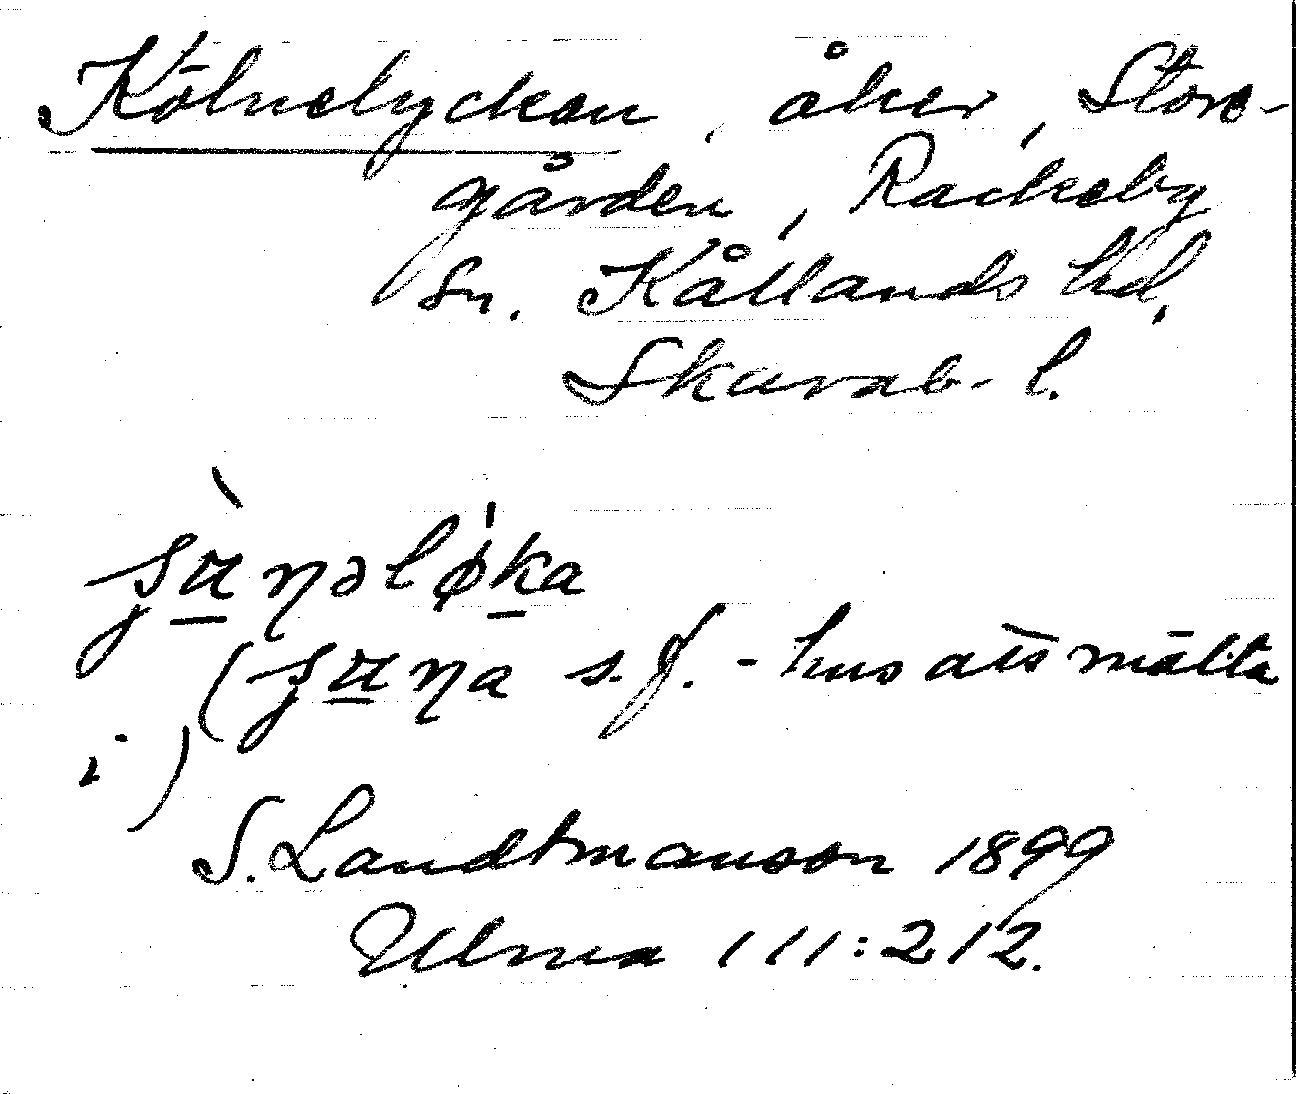 Kölnelyckan, åker, Store-
gården, Rackeby
sn. Kållands hd,
Skarab. l.
(
s.f. - hus att mälta
i)
S. Landtmanson 1899
Ulma 111:212.